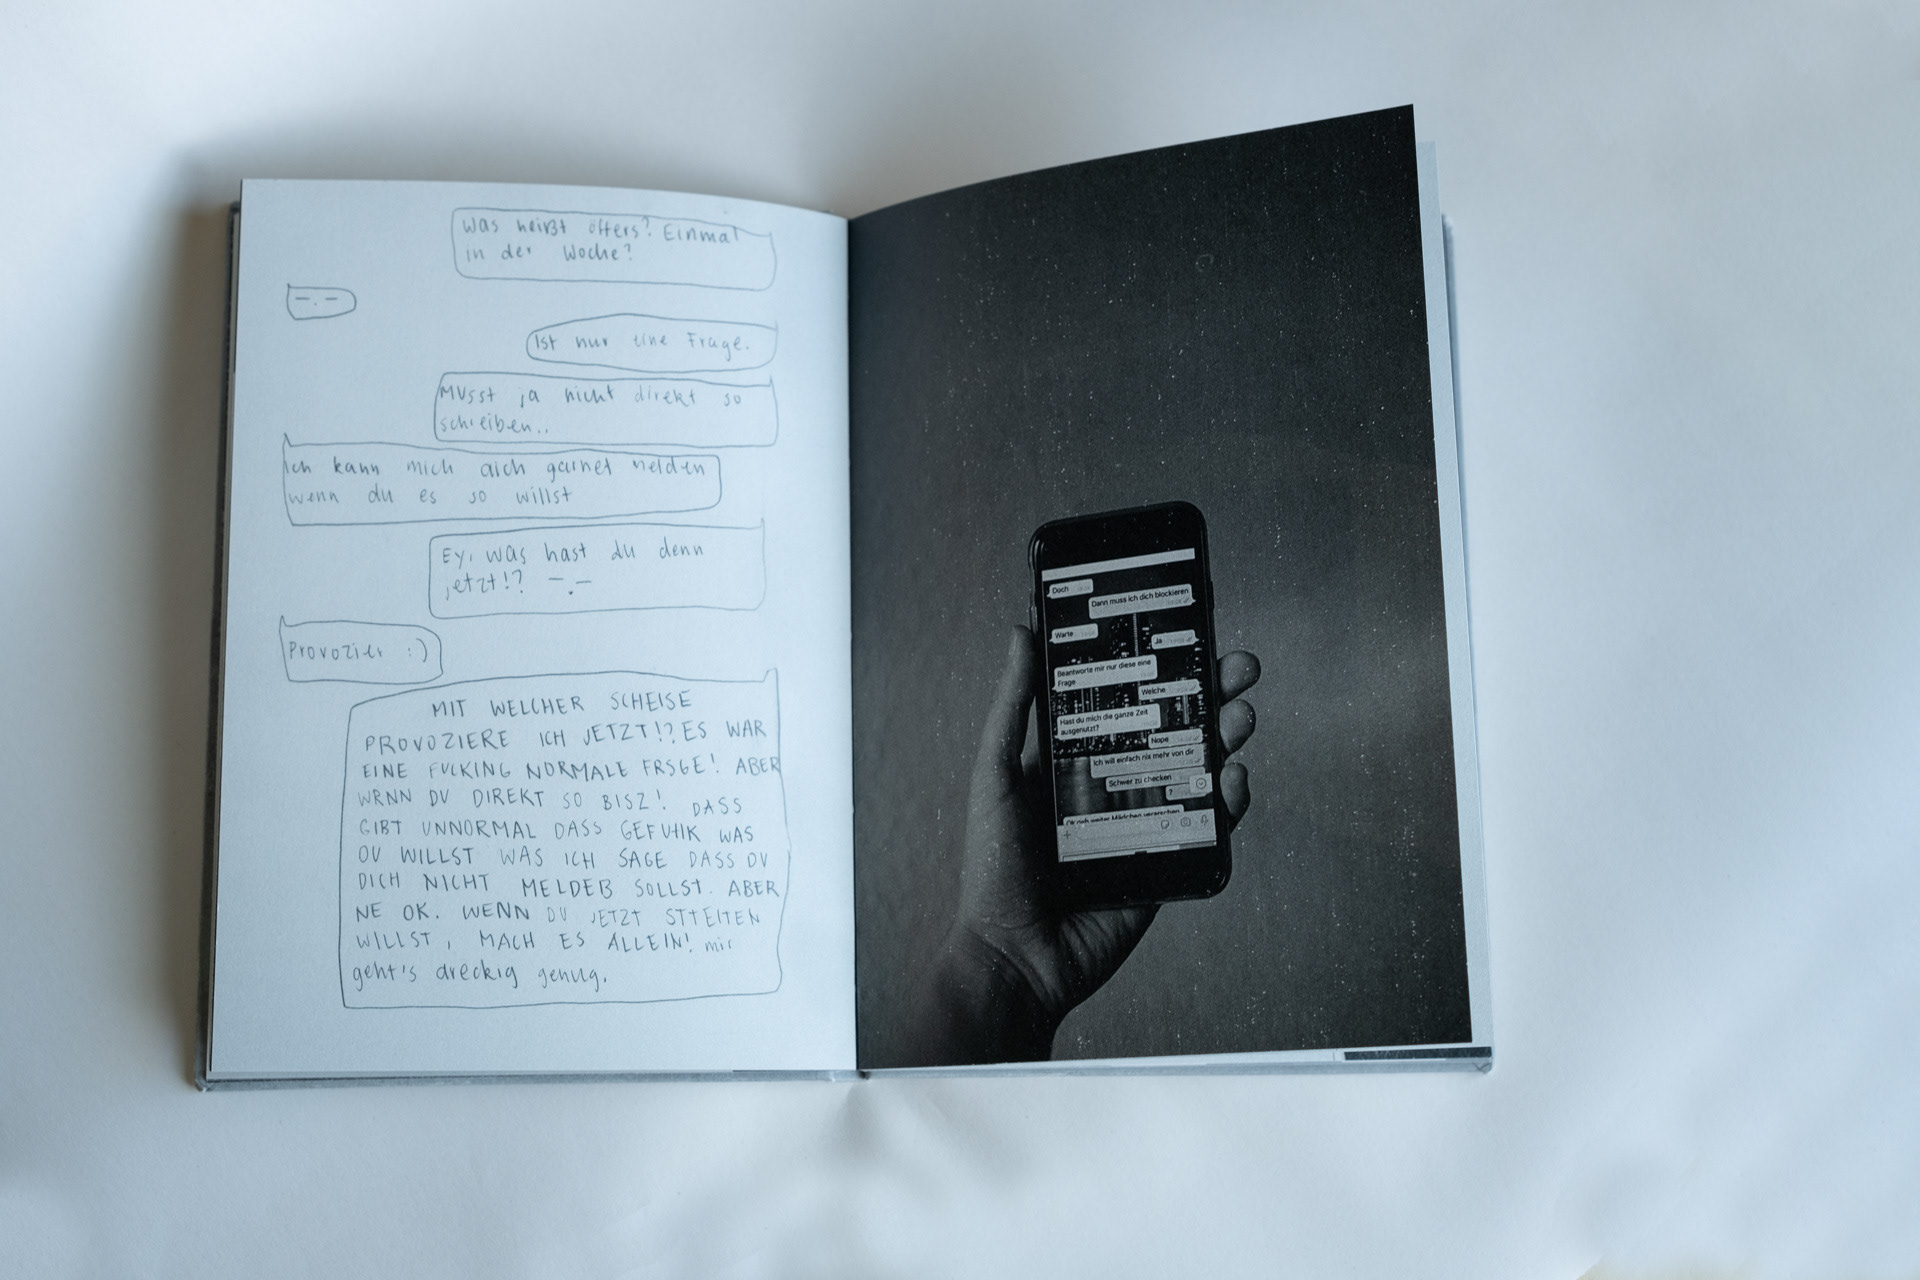 Was heißt öfters? Einmal
in der Woche?
-.-
Ist nur eine Frage.
Musst ja nicht direkt so
schreiben..
Ich kann mich aich garnet melden
wenn du es so willst
Ey, was hast du denn
jetzt!? -.-
Provozier :)
MIT WELCHER SCHEISE
PROVOZIERE ICH JETZT!? ES WAR
EINE FUCKING NORMALE FRSGE! ABER
WRNN DU DIREKT SO BISZ! DASS
GIBT UNNORMAL DASS GEFUHK WAS
DU WILLST WAS ICH SAGE DASS DU
DICH NICHT MELDEB SOLLST. ABER
NE OK. WENN DU JETZT STTEITEN
WILLST, MACH ES ALLEIN! mir
geht's dreckig genug.
Doch
Dann muss ich dich blockieren
Warte
Ja
Beantworte mir nur diese eine
Frage
Welche
Hast du mich die ganze Zeit
ausgenutzt?
Nope
Ich will einfach nix mehr von dir
Schwer zu checken
?
weiter Mädchen verarschen